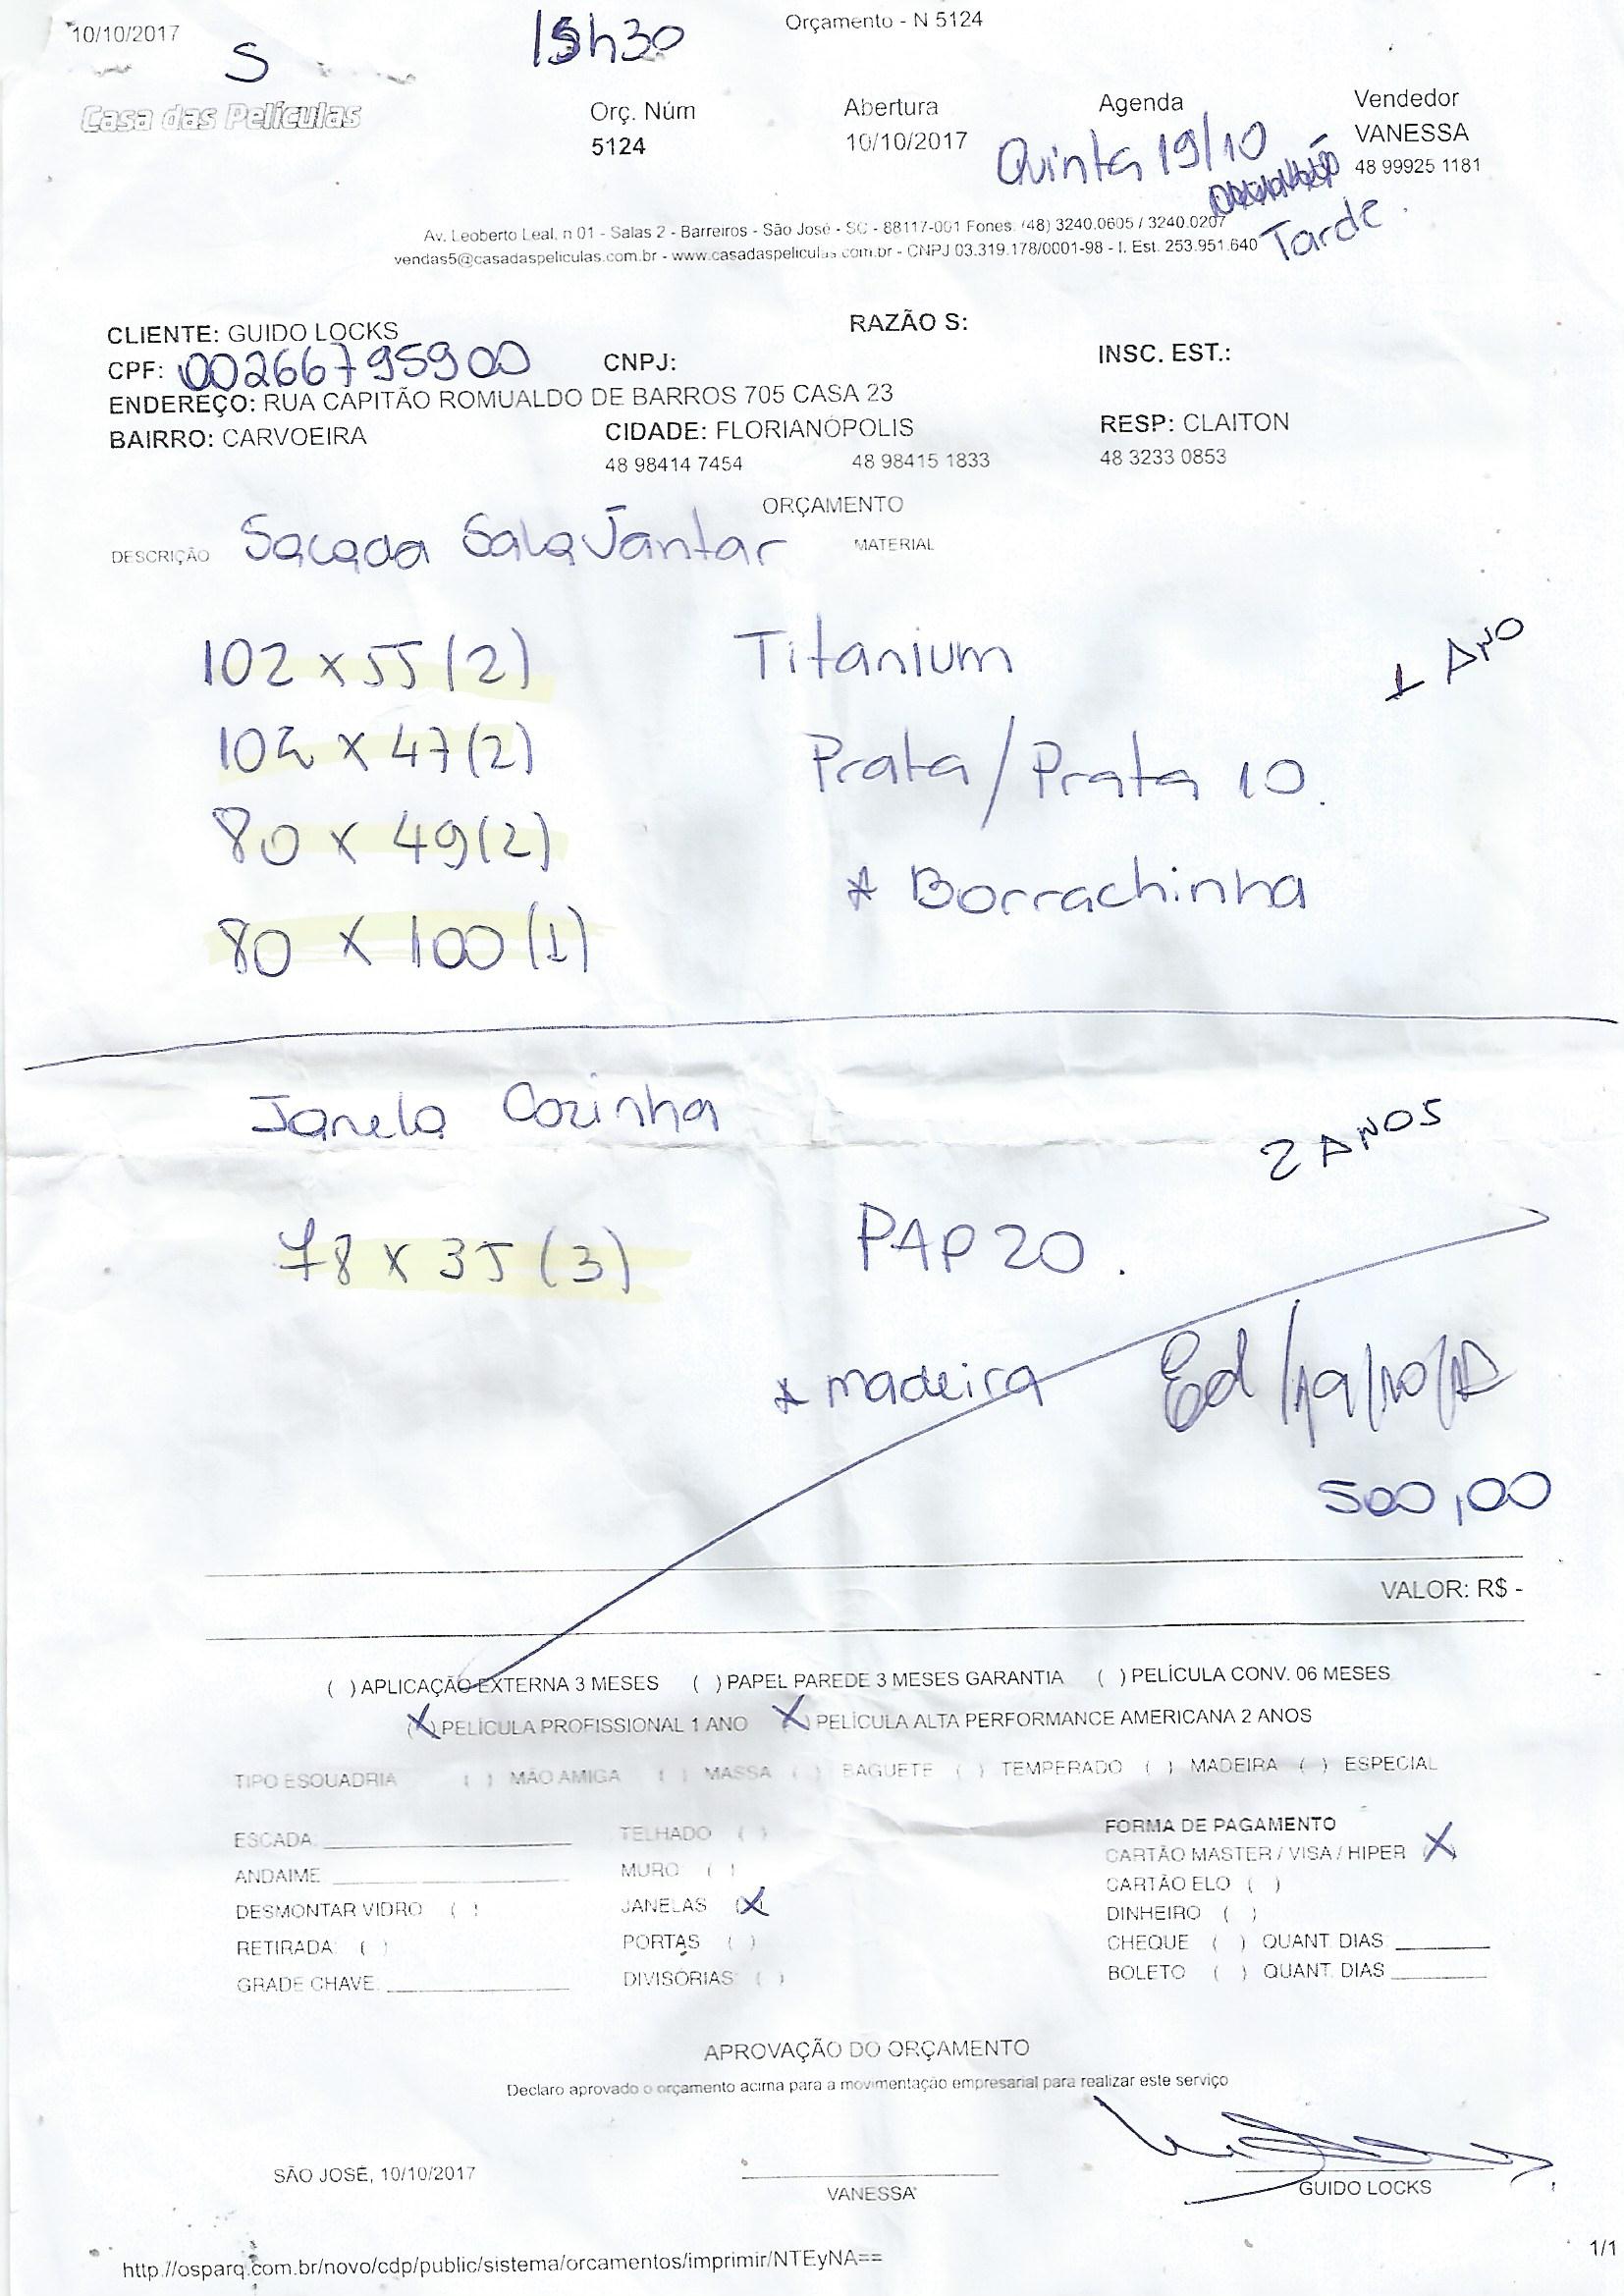 10/10/2017
Orçamento - N 5124
S
15h30
Casa das Películas
Orç. Núm
5124
Abertura
10/10/2017
Agenda
Quinta 19/10
Tarde.
Vendedor
VANESSA
48 99925 1181
Av. Leoberto Leal, n 01 - Salas 2 - Barreiros - São José - SC - 88117-001 Fones: (48) 3240.0605 / 3240.0207
vendas5@casadaspeliculas.com.br - www.casadaspeliculas.com.br - CNPJ 03.319.178/0001-98 - I. Est. 253.951.640
CLIENTE: GUIDO LOCKS
RAZÃO S:
CPF: 00266795900
CNPJ:
INSC. EST.:
ENDEREÇO: RUA CAPITÃO ROMUALDO DE BARROS 705 CASA 23
BAIRRO: CARVOEIRA
CIDADE: FLORIANÓPOLIS
RESP: CLAITON
48 98414 7454
48 98415 1833
48 3233 0853
ORÇAMENTO
DESCRIÇÃO Sacada Sala Jantar
MATERIAL
102 x 55 (2)
Titanium
1 ANO
102 x 47 (2)
Prata/Prata 10.
80 x 49 (2)
* Borrachinha
80 x 100 (1)
Janela Cozinha
2 ANOS
78 x 35 (3)
PAP 20.
* madeira
Ed /19/10/17
500,00
VALOR: R$ -
( ) APLICAÇÃO EXTERNA 3 MESES ( ) PAPEL PAREDE 3 MESES GARANTIA ( ) PELÍCULA CONV. 06 MESES
(X) PELÍCULA PROFISSIONAL 1 ANO (X) PELÍCULA ALTA PERFORMANCE AMERICANA 2 ANOS
TIPO ESQUADRIA ( ) MÃO AMIGA ( ) MASSA ( ) BAGUETE ( ) TEMPERADO ( ) MADEIRA ( ) ESPECIAL
ESCADA: ____________
TELHADO ( )
FORMA DE PAGAMENTO
ANDAIME: ____________
MURO ( )
CARTÃO MASTER / VISA / HIPER X
DESMONTAR VIDRO ( )
JANELAS (X)
CARTÃO ELO ( )
RETIRADA: ( )
PORTAS ( )
DINHEIRO ( )
GRADE CHAVE: ____________
DIVISÓRIAS: ( )
CHEQUE ( ) QUANT. DIAS: ______
BOLETO ( ) QUANT. DIAS: ______
APROVAÇÃO DO ORÇAMENTO
Declaro aprovado o orçamento acima para a movimentação empresarial para realizar este serviço
SÃO JOSÉ, 10/10/2017
VANESSA
GUIDO LOCKS
http://osparq.com.br/novo/cdp/public/sistema/orcamentos/imprimir/NTEyNA==
1/1